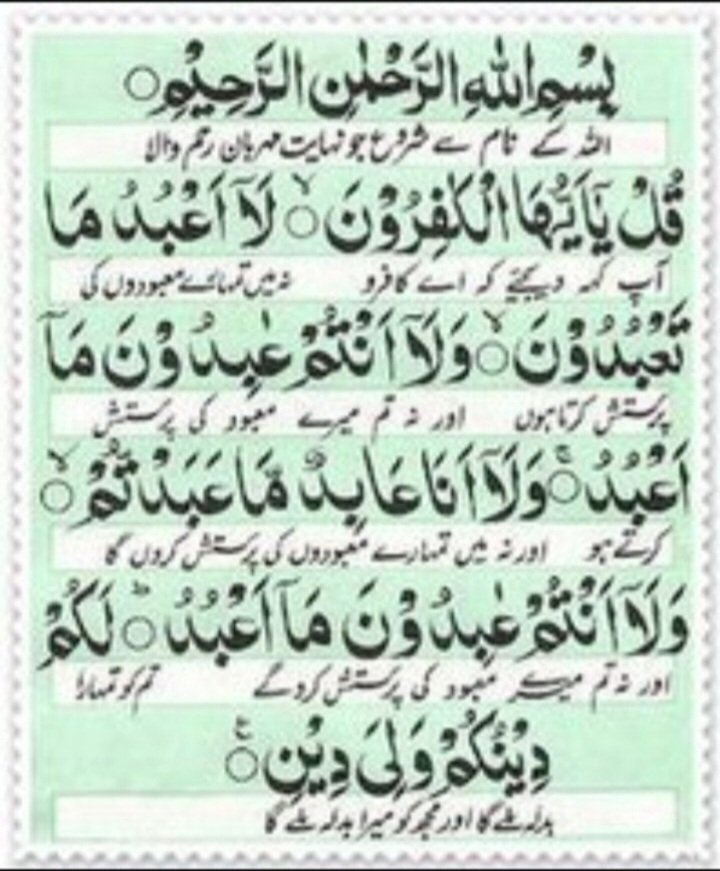 بِسْمِ اللهِ الرَّحْمٰنِ الرَّحِيْمِ○
اللہ کے نام سے شروع جو نہایت مہربان رحم والا
قُلْ يٰۤاَيُّهَا الْكٰفِرُوْنَ○ۙ لَاۤ اَعْبُدُ مَا
آپ کہہ دیجئے کہ اے کافرو نہ میں تمہارے معبودوں کی
تَعْبُدُوْنَ○ۙ وَلَاۤ اَنْتُمْ عٰبِدُوْنَ مَاۤ
پرستش کرتا ہوں اور نہ تم میرے معبود کی پرستش
اَعْبُدُ○ۚ وَلَاۤ اَنَا عَابِدٌ مَّا عَبَدْتُّمْ○ۙ
کرتے ہو اور نہ میں تمہارے معبودوں کی پرستش کروں گا
وَلَاۤ اَنْتُمْ عٰبِدُوْنَ مَاۤ اَعْبُدُ○ؕ لَكُمْ
اور نہ تم میرے معبود کی پرستش کروگے تم کو تمہارا
دِيْنُكُمْ وَلِيَ دِيْنِ○ۧ
بدلہ ملے گا اور مجھ کو میرا بدلہ ملے گا